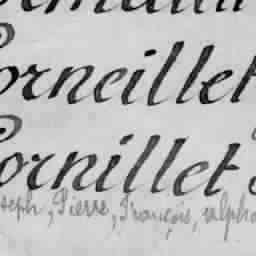 Corneillet
Cornillet
Joseph, Pierre, François, Alpho